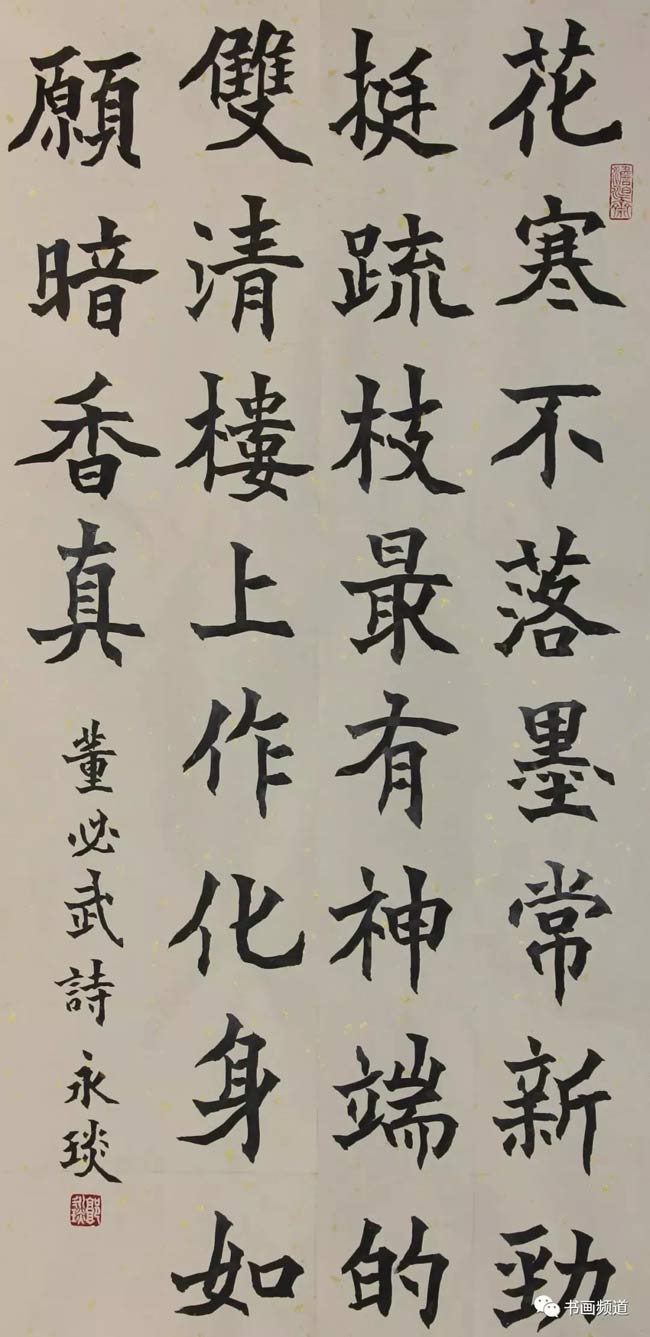 花寒不落墨常新勁
挺疏枝最有神端的
雙清樓上作化身如
願暗香真
董必武詩 永琰
书画频道